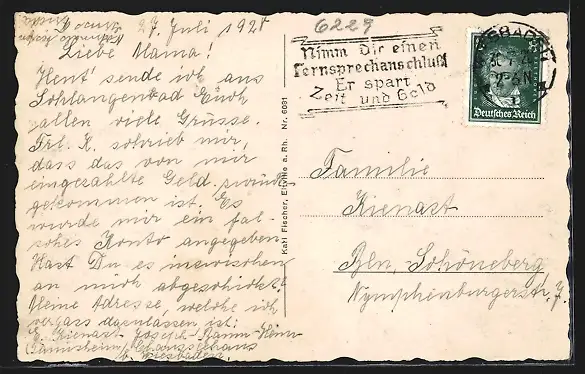 27. Juli 192
Liebe Mama!
Heut' sende ich aus
Schlangenbad Euch
allen viele Grüsse.
Frl. K. schrieb mir,
dass das von mir
eingezahlte Geld zurück-
gekommen ist. Es
wurde mir ein fal-
sches Konto angegeben.
Hast Du es inzwischen
an mich abgeschickt?
Meine Adresse, welche ich
vergass dazulassen ist:
E. Kienast Joseph-Baum-Heim
Chausseehaus
b. Wiesbaden
Karl Fischer, Eltville a. Rh. Nr. 6091
6229
Nimm Dir einen
Fernsprechanschluß
Er spart
Zeit und Geld
WIESBADEN
Deutsches Reich
Familie
Kienast
Bln. Schöneberg
Nymphenburgerstr. 7.